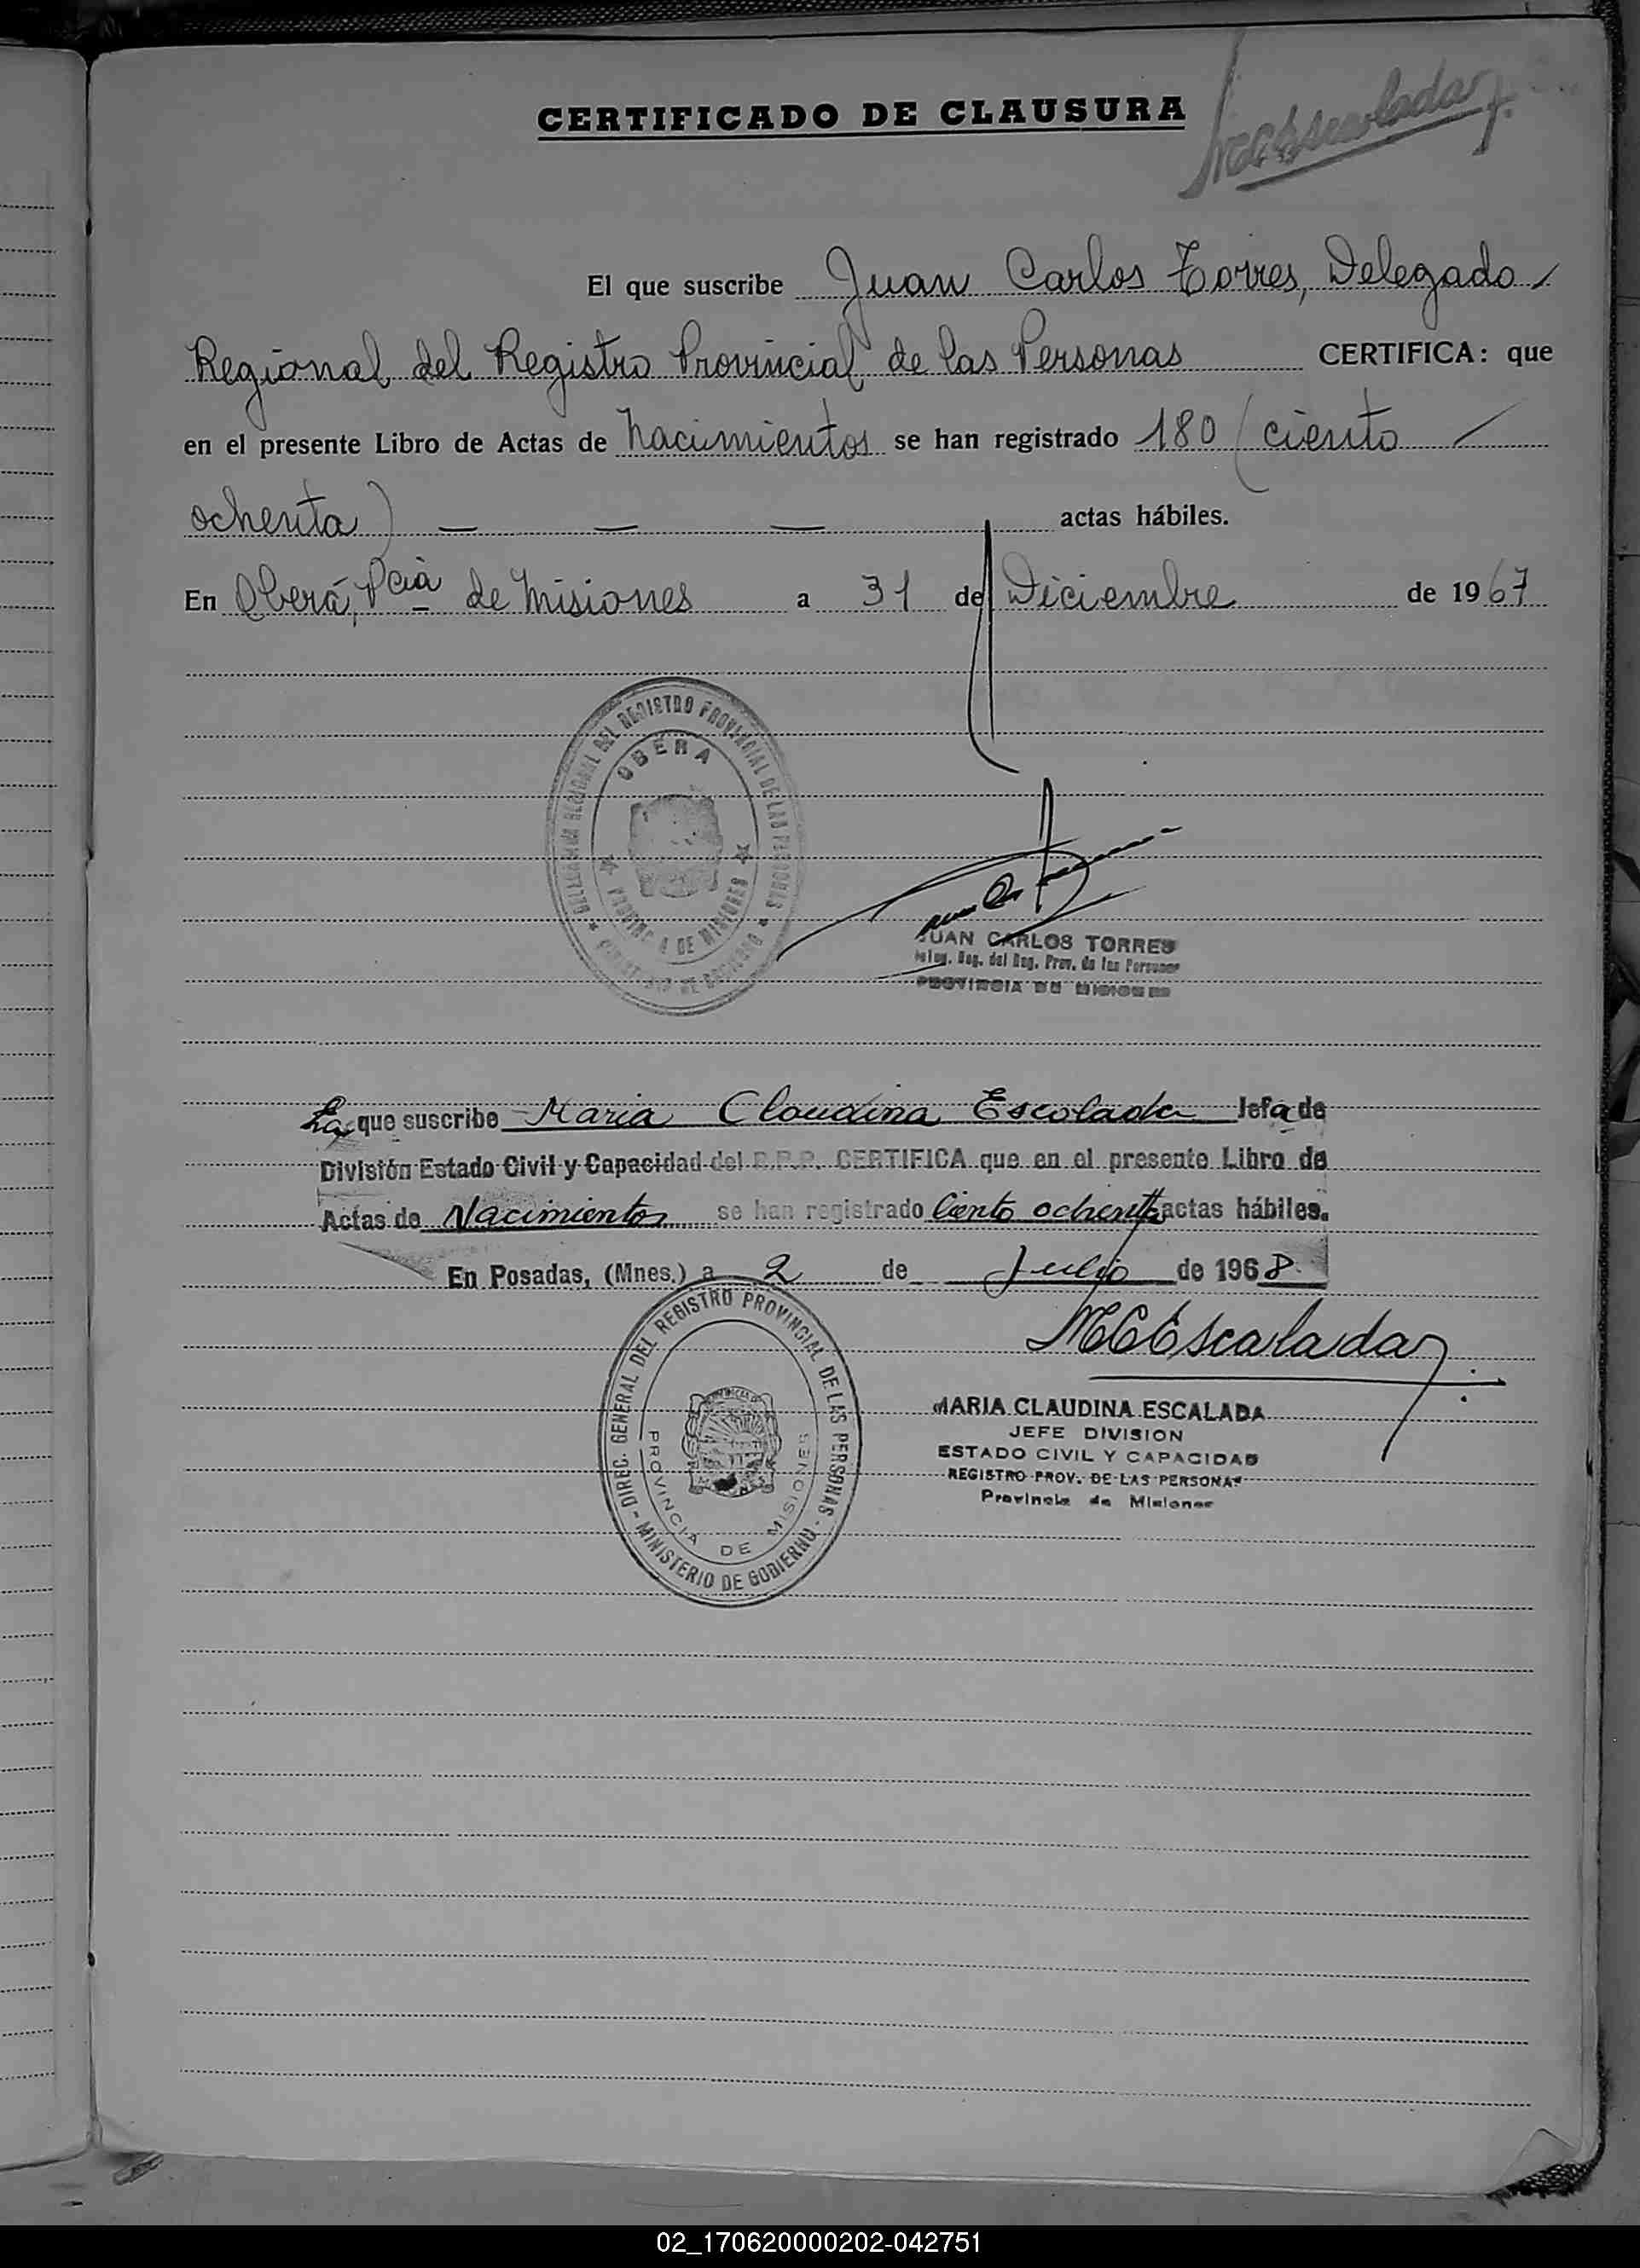 CERTIFICADO DE CLAUSURA
MCEscalada
El que suscribe Juan Carlos Torres, Delegado
Regional del Registro Provincial de las Personas CERTIFICA: que
en el presente Libro de Actas de Nacimientos se han registrado 180 (ciento
ochenta) — — — actas hábiles.
En Oberá, Pcia de Misiones a 31 de Diciembre de 1967
DELEGACION REGIONAL DEL REGISTRO PROVINCIAL DE LAS PERSONAS
OBERA
PROVINCIA DE MISIONES
JUAN CARLOS TORRES
Deleg. Reg. del Reg. Prov. de las Personas
PROVINCIA DE MISIONES
La que suscribe Maria Claudina Escalada Jefa de
División Estado Civil y Capacidad del R.P.P. CERTIFICA que en el presente Libro de
Actas de Nacimientos se han registrado Ciento ochenta actas hábiles.
En Posadas, (Mnes.) a 2 de Julio de 1968
MCEscalada
DIREC. GENERAL DEL REGISTRO PROVINCIAL DE LAS PERSONAS - MINISTERIO DE GOBIERNO -
PROVINCIA DE MISIONES
MARIA CLAUDINA ESCALADA
JEFE DIVISION
ESTADO CIVIL Y CAPACIDAD
REGISTRO PROV. DE LAS PERSONAS
Provincia de Misiones
02_170620000202-042751